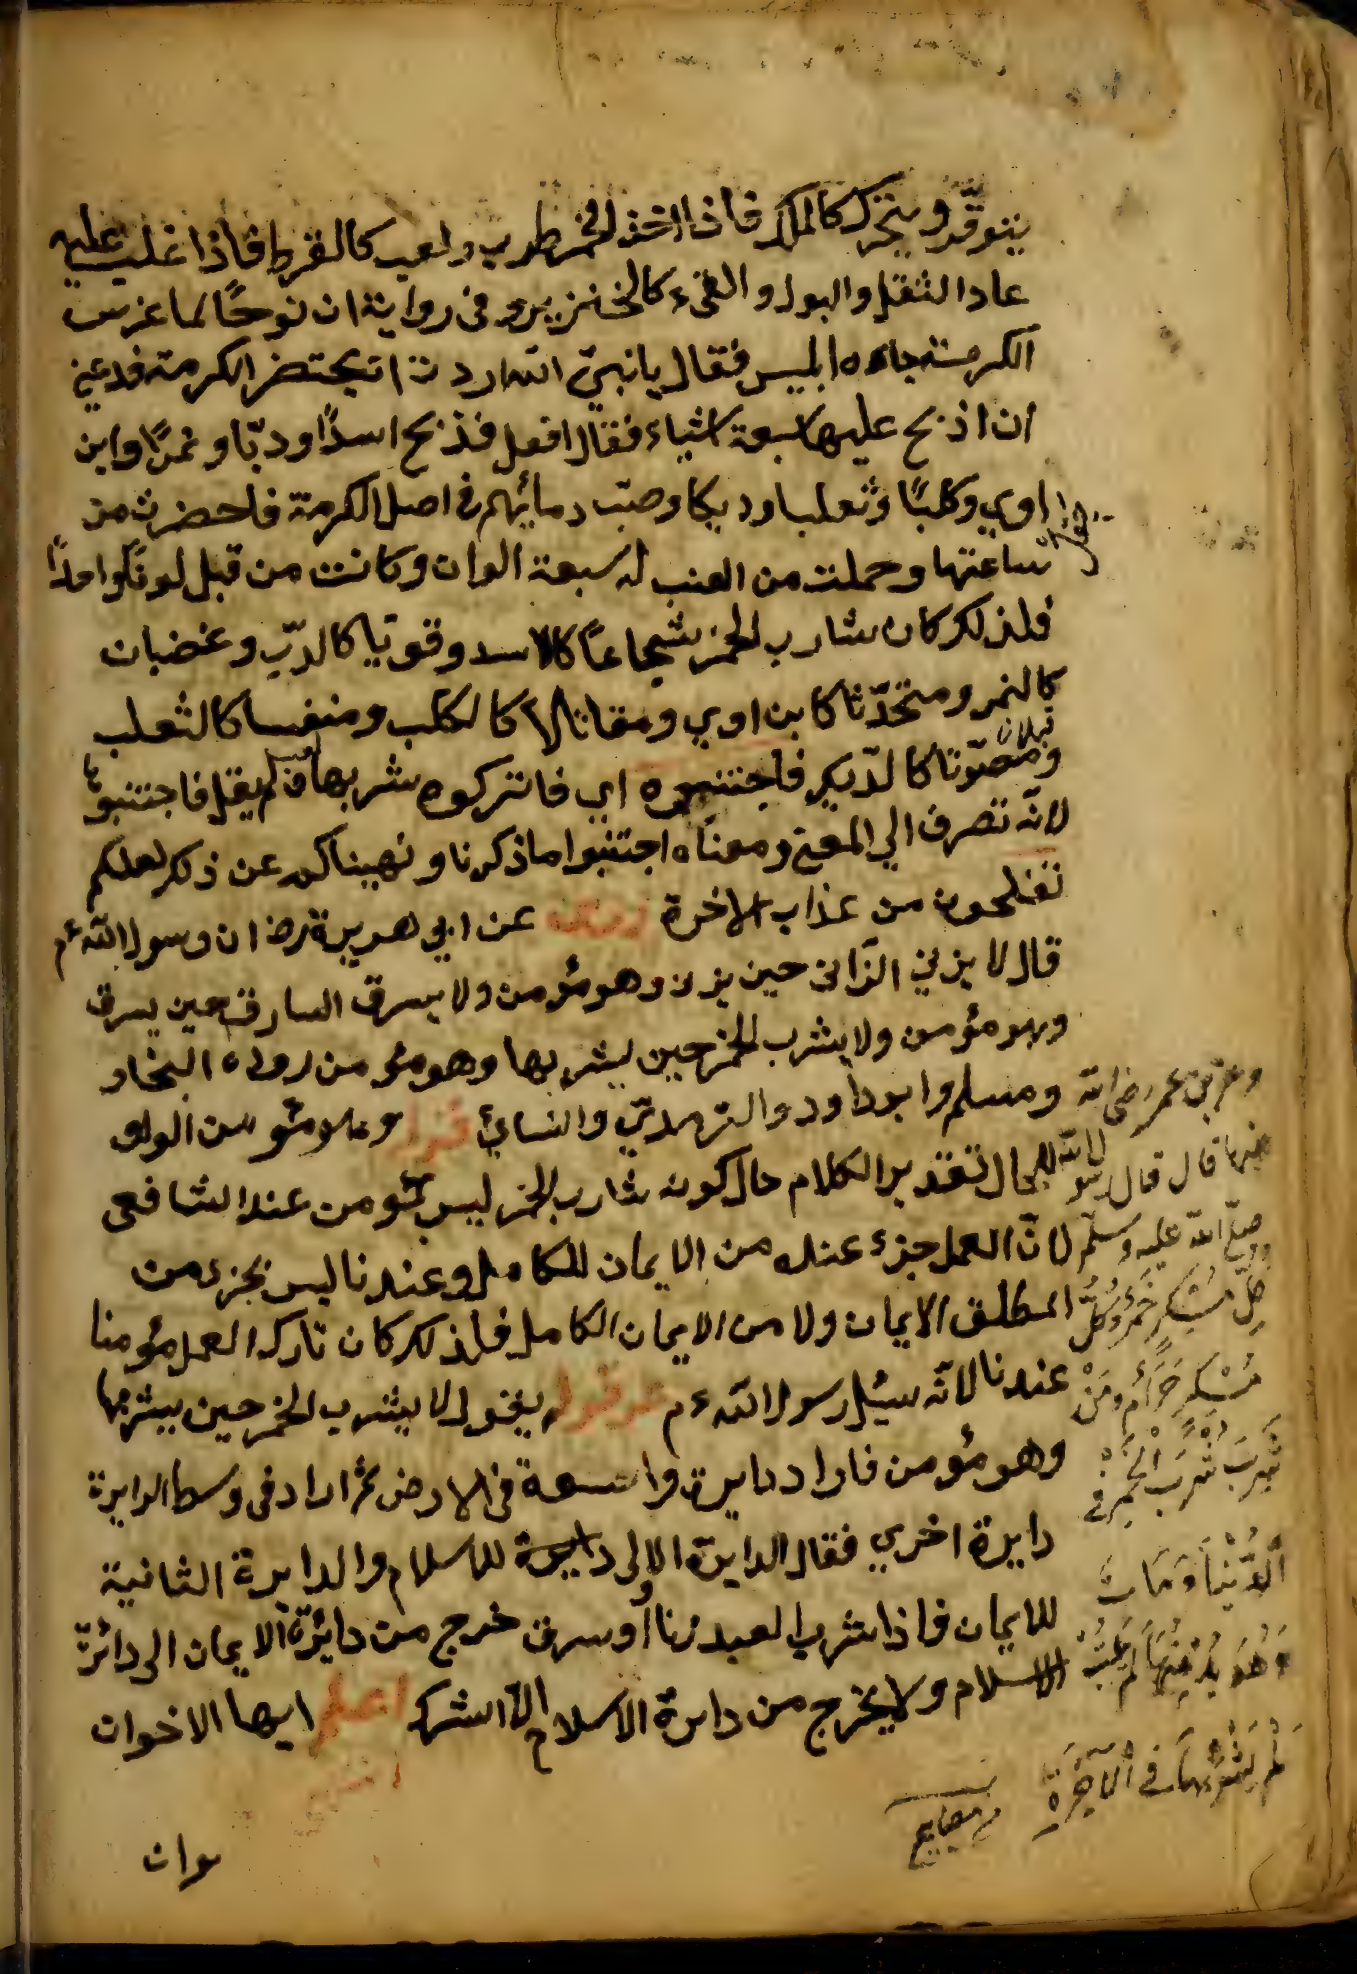 يتوقد ويتحرك كالملك فاذا اخذ الخمر طرب ولعب كالقرد فاذا غلب عليه
عاد الثقل والبول والقئ كالخنزير وفى رواية ان نوحًا لما غرس
الكرمة جاءه ابليس فقال يا نبىّ الله اردت ان يحتضر الكرمة فدعنى
ان اذبح عليها سبعة اشياء فقال افعل فذبح اسدًا ودبّا ونمرًا وابن
اوي وكلبًا وثعلبا وديكا وصبّ دمائهم فى اصل الكرمة فاحضرت من
ساعتها وحملت من العنب له سبعة الوان وكانت من قبل لونا واحدًا
فلذلك كان شارب الخمر شجاعًا كالاسد وقويّا كالدبّ وغضبان
كالنمر ومتحدّثا كابن اوي ومقاتلا كالكلب ومنغسا كالثعلب
ومصوّتا كالدّيك فاجتنبوه اي فاتركوه شربها فلم يقل فاجتنبوها
لانّه تصرف الي المعنى ومعناه اجتنبوا ما ذكرنا ونهيناكم عن ذلك لعلكم
تفلحون من عذاب الاخرة عن ابي هريرة رض ان رسول الله عم
قال لا يزني الزّانى حين يزنى وهو مؤمن ولا يسرق السارق حين يسرق
وهو مؤمن ولا يشرب الخمر حين يشربها وهو مؤمن رواه البخارى
ومسلم وابو داود والترمدىّ والنسائ قوله وهو مؤمن الواو
للحال تقدير الكلام حال كونه شارب الخمر ليس بمؤمن عند الشافعى
لانّ العمل جزء عنده من الايمان الكامل وعندنا ليس بجزء من
المطلق الايمان ولا من الايمان الكامل فلذلك كان تارك العمل مؤمنا
عندنا لانّه سئل رسول الله عم عن قوله يقول لا يشرب الخمر حين يشربها
وهو مؤمن فاراد دايرة واسعة فى الارض ثم اراد فى وسط الدايرة
دايرة اخري فقال الدايرة الاولى دايرة للاسلام والدايرة الثانية
للايمان فاذا شرب العبد او زنا او سرق خرج من دائرة الايمان الى دائرة
الاسلام ولا يخرج من دايرة الاسلام الاّ الشرك اعلم ايها الاخوان
وان
وعن بن عمر رضى الله
عنهما قال قال رسول الله
صلىّ الله عليه وسلّم
كلّ مُسْكِر خَمْرٌ وكُلُّ
مُسْكِرٍ حَرَامٌ وَمَنْ
شَرِبَ الْخَمْرَ فِى
الدُّنْيَا وَمَاتَ
وَهُوَ يُدْمِنُهَا لَمْ يَتُبْ
لَمْ يَشْرَبْهَا فِى الْآخِرَةِ
مصابيح